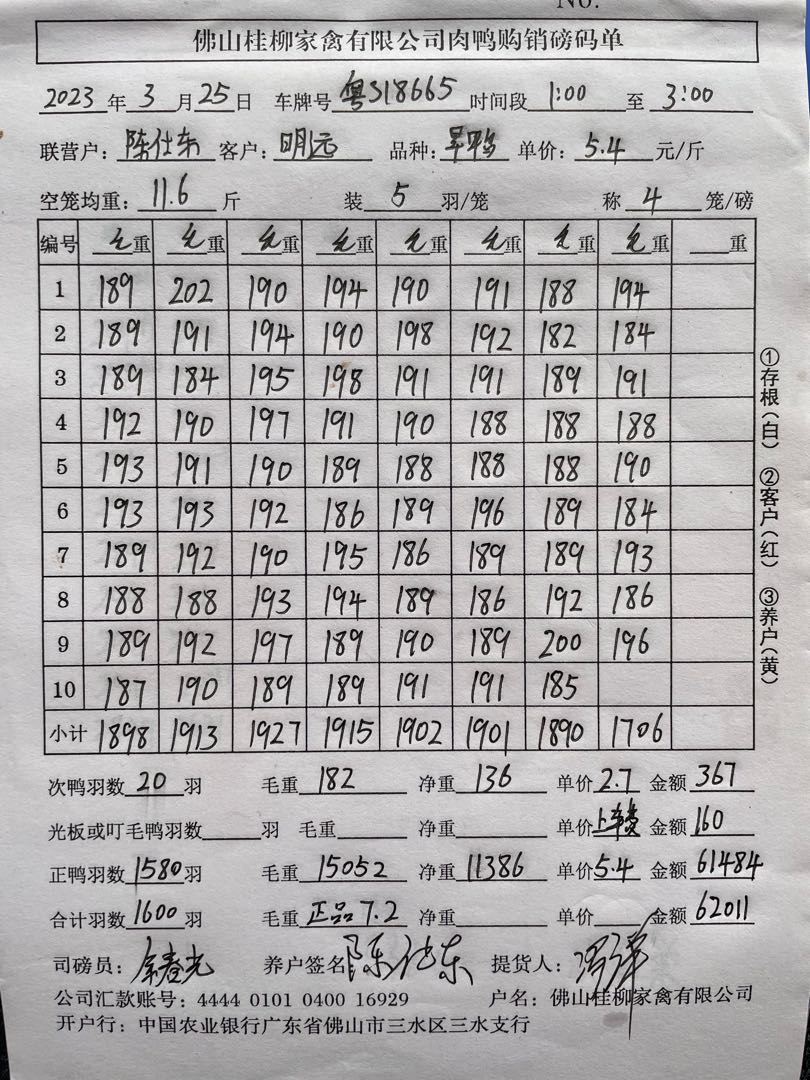 No.
佛山桂柳家禽有限公司肉鸭购销磅码单
2023 年 3 月 25 日 车牌号 粤S18665 时间段 1:00 至 3:00
联营户: 陈仕东 客户: 明远 品种: 旱鸭 单价: 5.4 元/斤
空笼均重: 11.6 斤 装 5 羽/笼 称 4 笼/磅
编号 毛重 毛重 毛重 毛重 毛重 毛重 毛重 毛重 重
1 189 202 190 194 190 191 188 194
2 189 191 194 190 198 192 182 184
3 189 184 195 198 191 191 189 191
4 192 190 197 191 190 188 188 188
5 193 191 190 189 188 188 188 190
6 193 193 192 186 189 196 189 184
7 189 192 190 195 186 189 189 193
8 188 188 193 194 189 186 192 186
9 189 192 197 189 190 189 200 196
10 187 190 189 189 191 191 185
小计 1898 1913 1927 1915 1902 1901 1890 1706
次鸭羽数 20 羽 毛重 182 净重 136 单价 2.7 金额 367
光板或叮毛鸭羽数 羽 毛重 净重 单价 上车费 金额 160
正鸭羽数 1580 羽 毛重 15052 净重 11386 单价 5.4 金额 61484
合计羽数 1600 羽 毛重 正品7.2 净重 单价 金额 62011
司磅员: 余春光 养户签名 陈仕东 提货人:
公司汇款账号: 4444 0101 0400 16929 户名: 佛山桂柳家禽有限公司
开户行: 中国农业银行广东省佛山市三水区三水支行
①存根(白) ②客户(红) ③养户(黄)